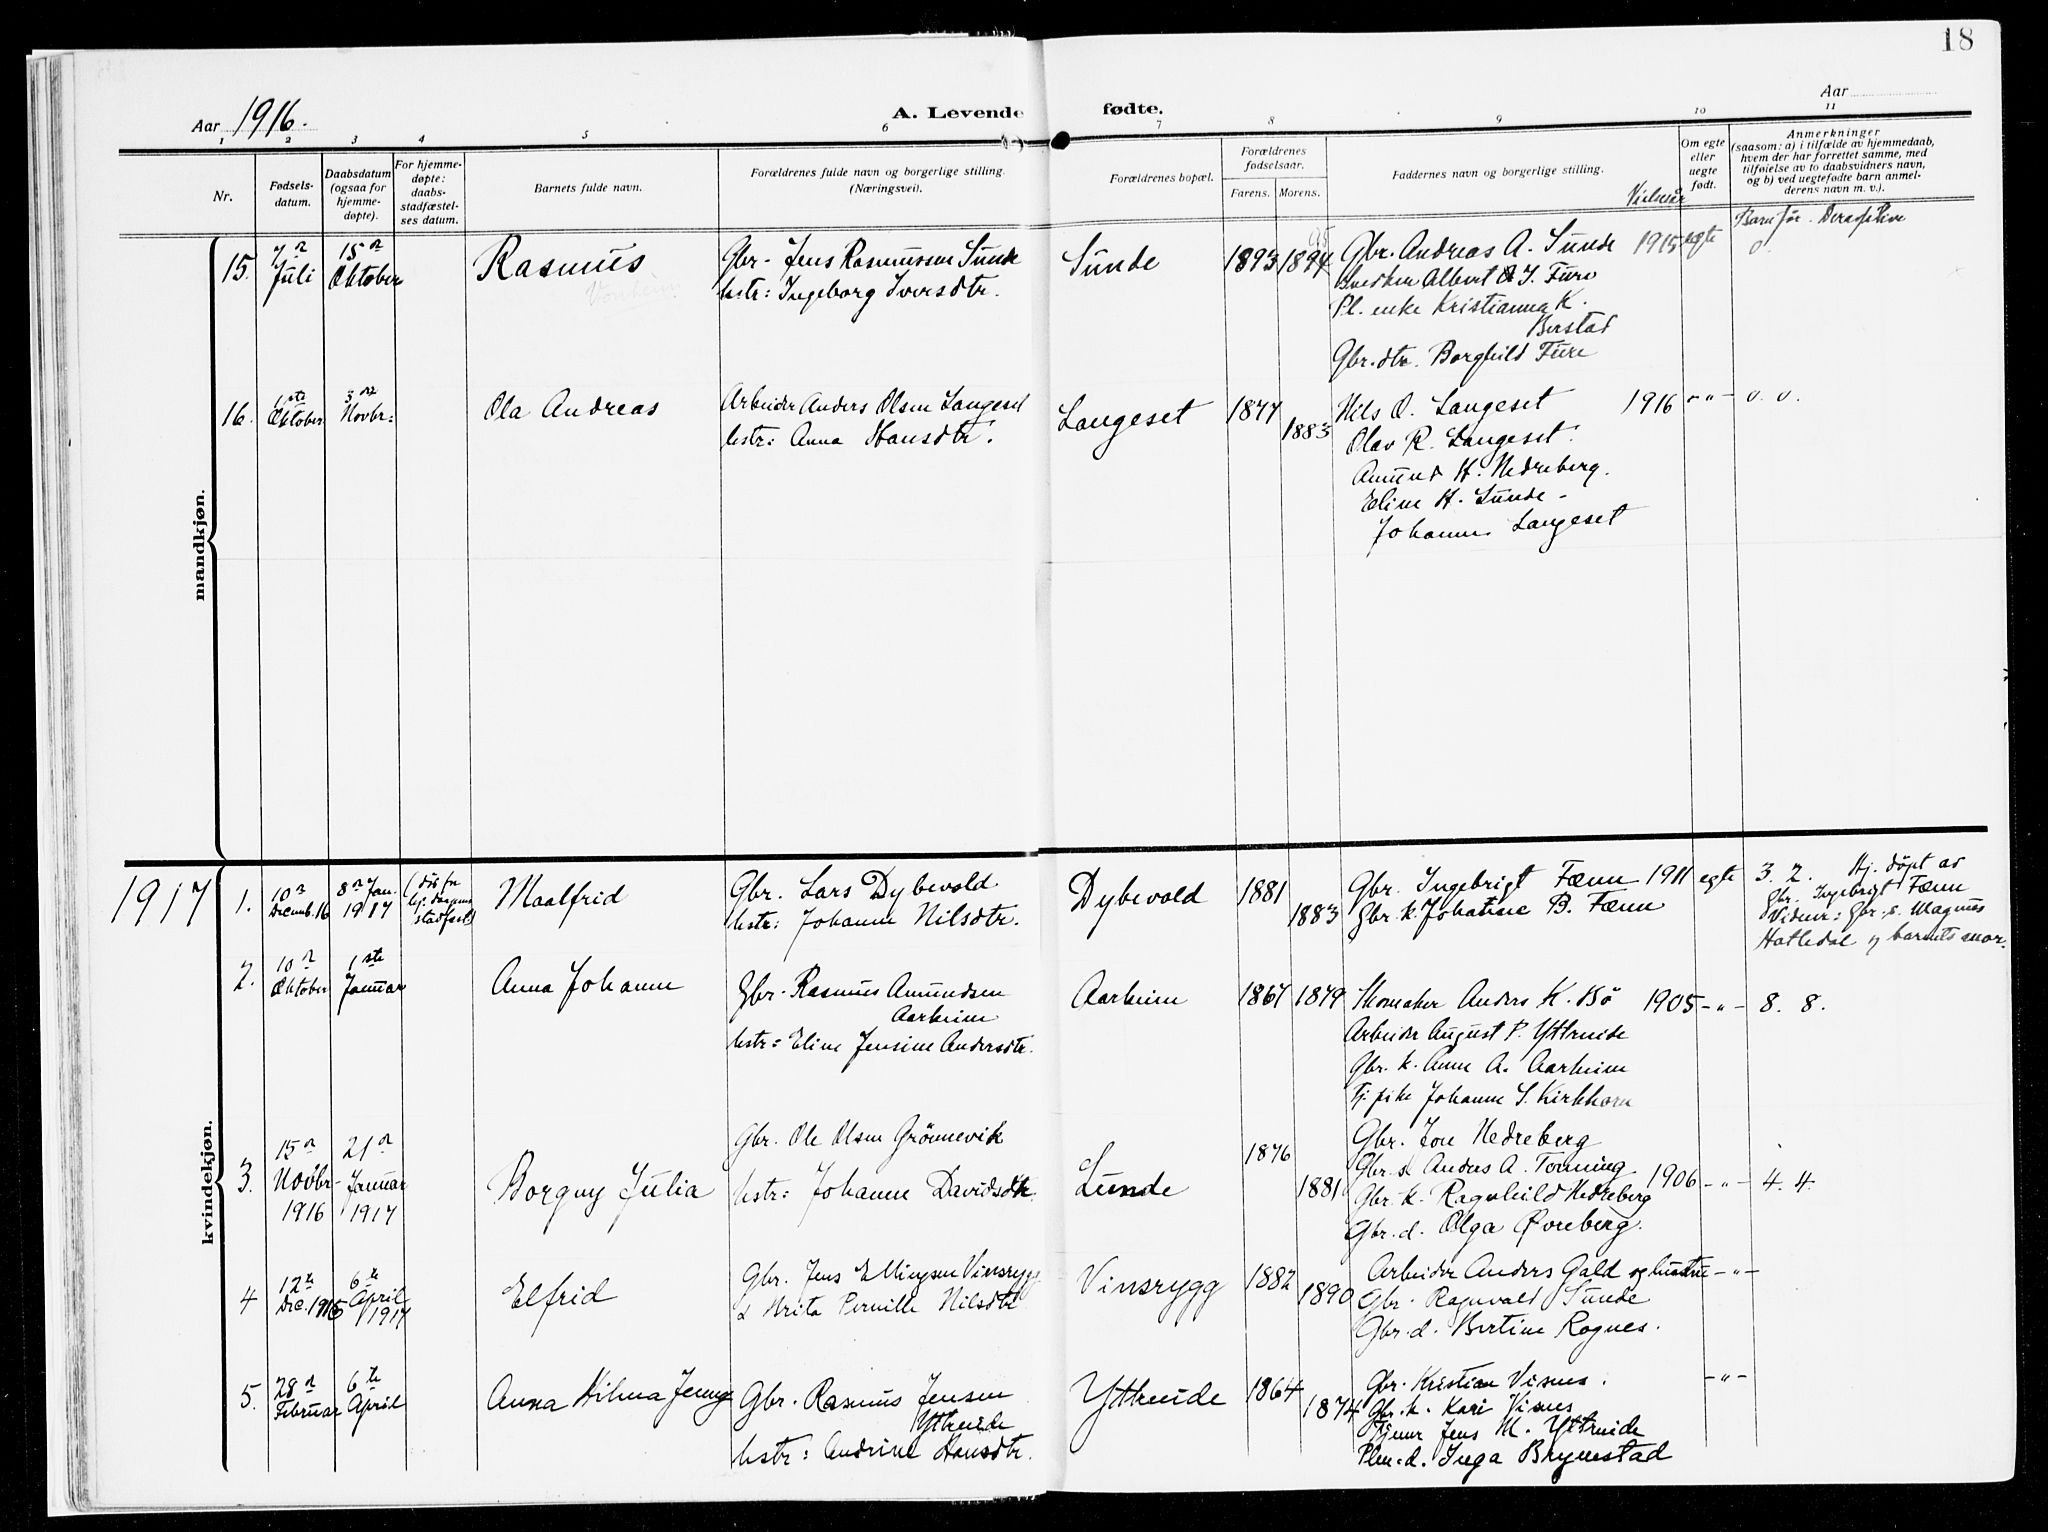 18
Aar 1916.
A. Levende fødte.
Aar
1 2 3 4 5 6 7 8 9 10 11
Nr.
Fødsels-
datum.
Daabsdatum
(ogsaa for
hjemme-
døpte).
For hjemme-
døpte:
daabs-
stadfæstel-
ses datum.
Barnets fulde navn.
Forældrenes fulde navn og borgerlige stilling.
(Næringsvei).
Forældrenes bopæl.
Forældrenes
fødselsaar.
Farens. Morens.
Faddernes navn og borgerlige stilling.
Vielsesår
Om egte
eller
uegte
født.
Anmerkninger
(saasom: a) i tilfælde av hjemmedaab,
hvem der har forrettet samme, med
tilføielse av to daabsvidners navn,
og b) ved uegtefødte barn anmel-
derens navn m. v.).
Barn før. Derav i live
mandkjøn.
15.
7de
Juli
15de
Oktober
Rasmus
Vonheim
Gbr. Jens Rasmussen Sunde
hstr: Ingeborg Iversdtr.
Sunde
1893
1894
95
Gbr. Andreas A. Sunde
Snedker Albert J. Fure
Pl. enke Kristianna K.
Berstad
Gbr.dtr. Borghild Fure
1915
egte
0.
16.
1ste
Oktober
3die
Novbr:
Ola Andreas
Arbeider Anders Olsen Langeset
hstr: Anna Hansdtr.
Langeset
1877
1883
Nils O. Langeset
Olav R. Langeset.
Amund H. Nedreberg.
Eline H. Sunde -
Johanne Langeset
1916
-"-
0. 0.
kvindekjøn.
1917
1.
10de
Decemb. 16
8de Jan.
1917
Maalfrid
Gbr. Lars Dybevold
hstr: Johanne Nilsdtr.
Dybevold
1881
1883
Gbr. Ingebrigt Fænn
Gbr. k. Johanne B. Fænn
1911
egte
3. 2. Hj. døpt av
Gbr. Ingebrigt Fænn
Vidner: Gbr. s. Magnus
Hatledal og barnets mor.
2.
10de
Oktober
1ste
Januar
Anna Johanne
Gbr. Rasmus Amundsen
Aarheim
hstr: Eline Jensine Andersdtr.
Aarheim
1867
1879
Skomaker Anders K. Bö
Arbeider August P. Yttreeide
Gbr. k. Anne A. Aarheim
Tj. pike Johanne S. Kirkhorn
1905
-"-
8. 8.
3.
15de
Novbr-
1916
21de
Januar
1917
Borgny Julia
Gbr. Ole Olsen Grönnevik
hstr: Johanne Davidsdtr.
Lunde
1876
1881
Gbr. Jon Nedreberg
Gbr. s. Anders A. Tonning
Gbr. k. Ragnhild Nedreberg
Gbr. d. Olga Øvreberg.
1906
-"-
4. 4.
4
12te
Dec. 1916
6te
April
1917
Elfrid
Gbr. Jens Ellingsen Vinsrygg
& Mrita Pernille Nilsdtr
Vinsrygg
1882
1890
Arbeider Anders Gald og hustru
Gbr. Ragnvald Sunde
Gbr. d. Bertine Rognes.
-"-
5.
28de
Februar
6te
April
Anna Hilma Jenny
Gbr. Rasmus Jensen
Yttreeide
hstr: Andrine Hansdtr.
Yttreeide
1864
1874
Gbr. Kristian Visnes.
Gbr. k. Kari Visnes
Tjener Jens M. Yttreeide
Plm. d. Inga Brynestad
-"-